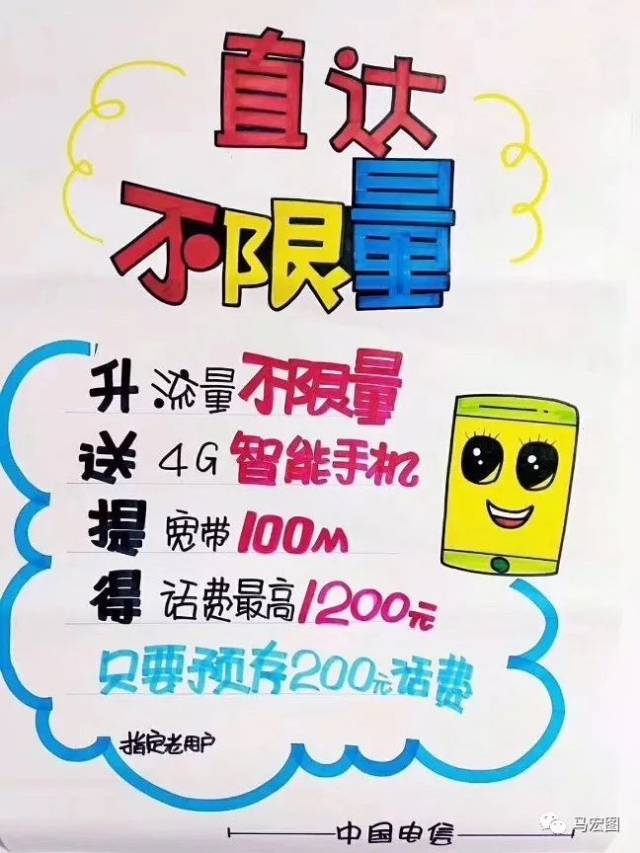 直达
不限量
升 流量不限量
送 4G 智能手机
提 宽带100M
得 话费最高1200元
只要预存200元话费
指定老用户
中国电信
马宏图